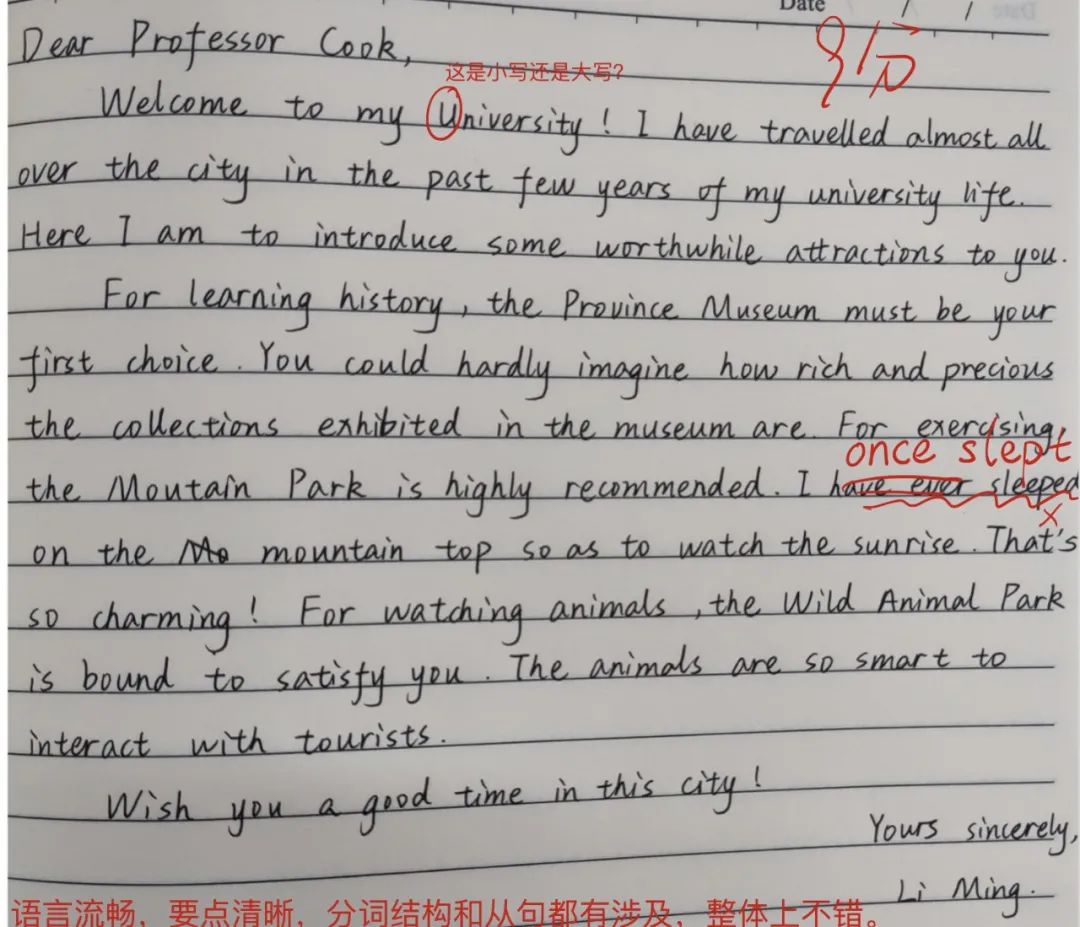 Date / /
Dear Professor Cook,
9/15
这是小写还是大写？
Welcome to my University! I have travelled almost all
over the city in the past few years of my university life.
Here I am to introduce some worthwhile attractions to you.
For learning history, the Province Museum must be your
first choice. You could hardly imagine how rich and precious
the collections exhibited in the museum are. For exercising,
once slept
the Moutain Park is highly recommended. I have ever sleeped
×
on the Mo mountain top so as to watch the sunrise. That's
so charming! For watching animals, the Wild Animal Park
is bound to satisfy you. The animals are so smart to
interact with tourists.
Wish you a good time in this city!
Yours sincerely,
Li Ming.
语言流畅，要点清晰，分词结构和从句都有涉及，整体上不错。